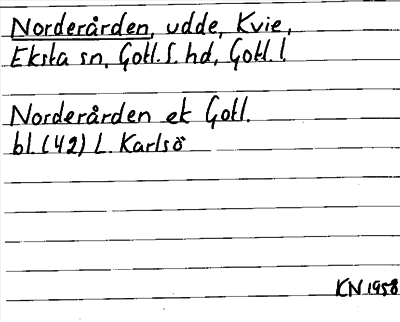 Norderården, udde, Kvie,
Eksta sn, Gotl. S. hd, Gotl. l.
Norderården ek Gotl.
bl. (42) L. Karlsö
KN 1958